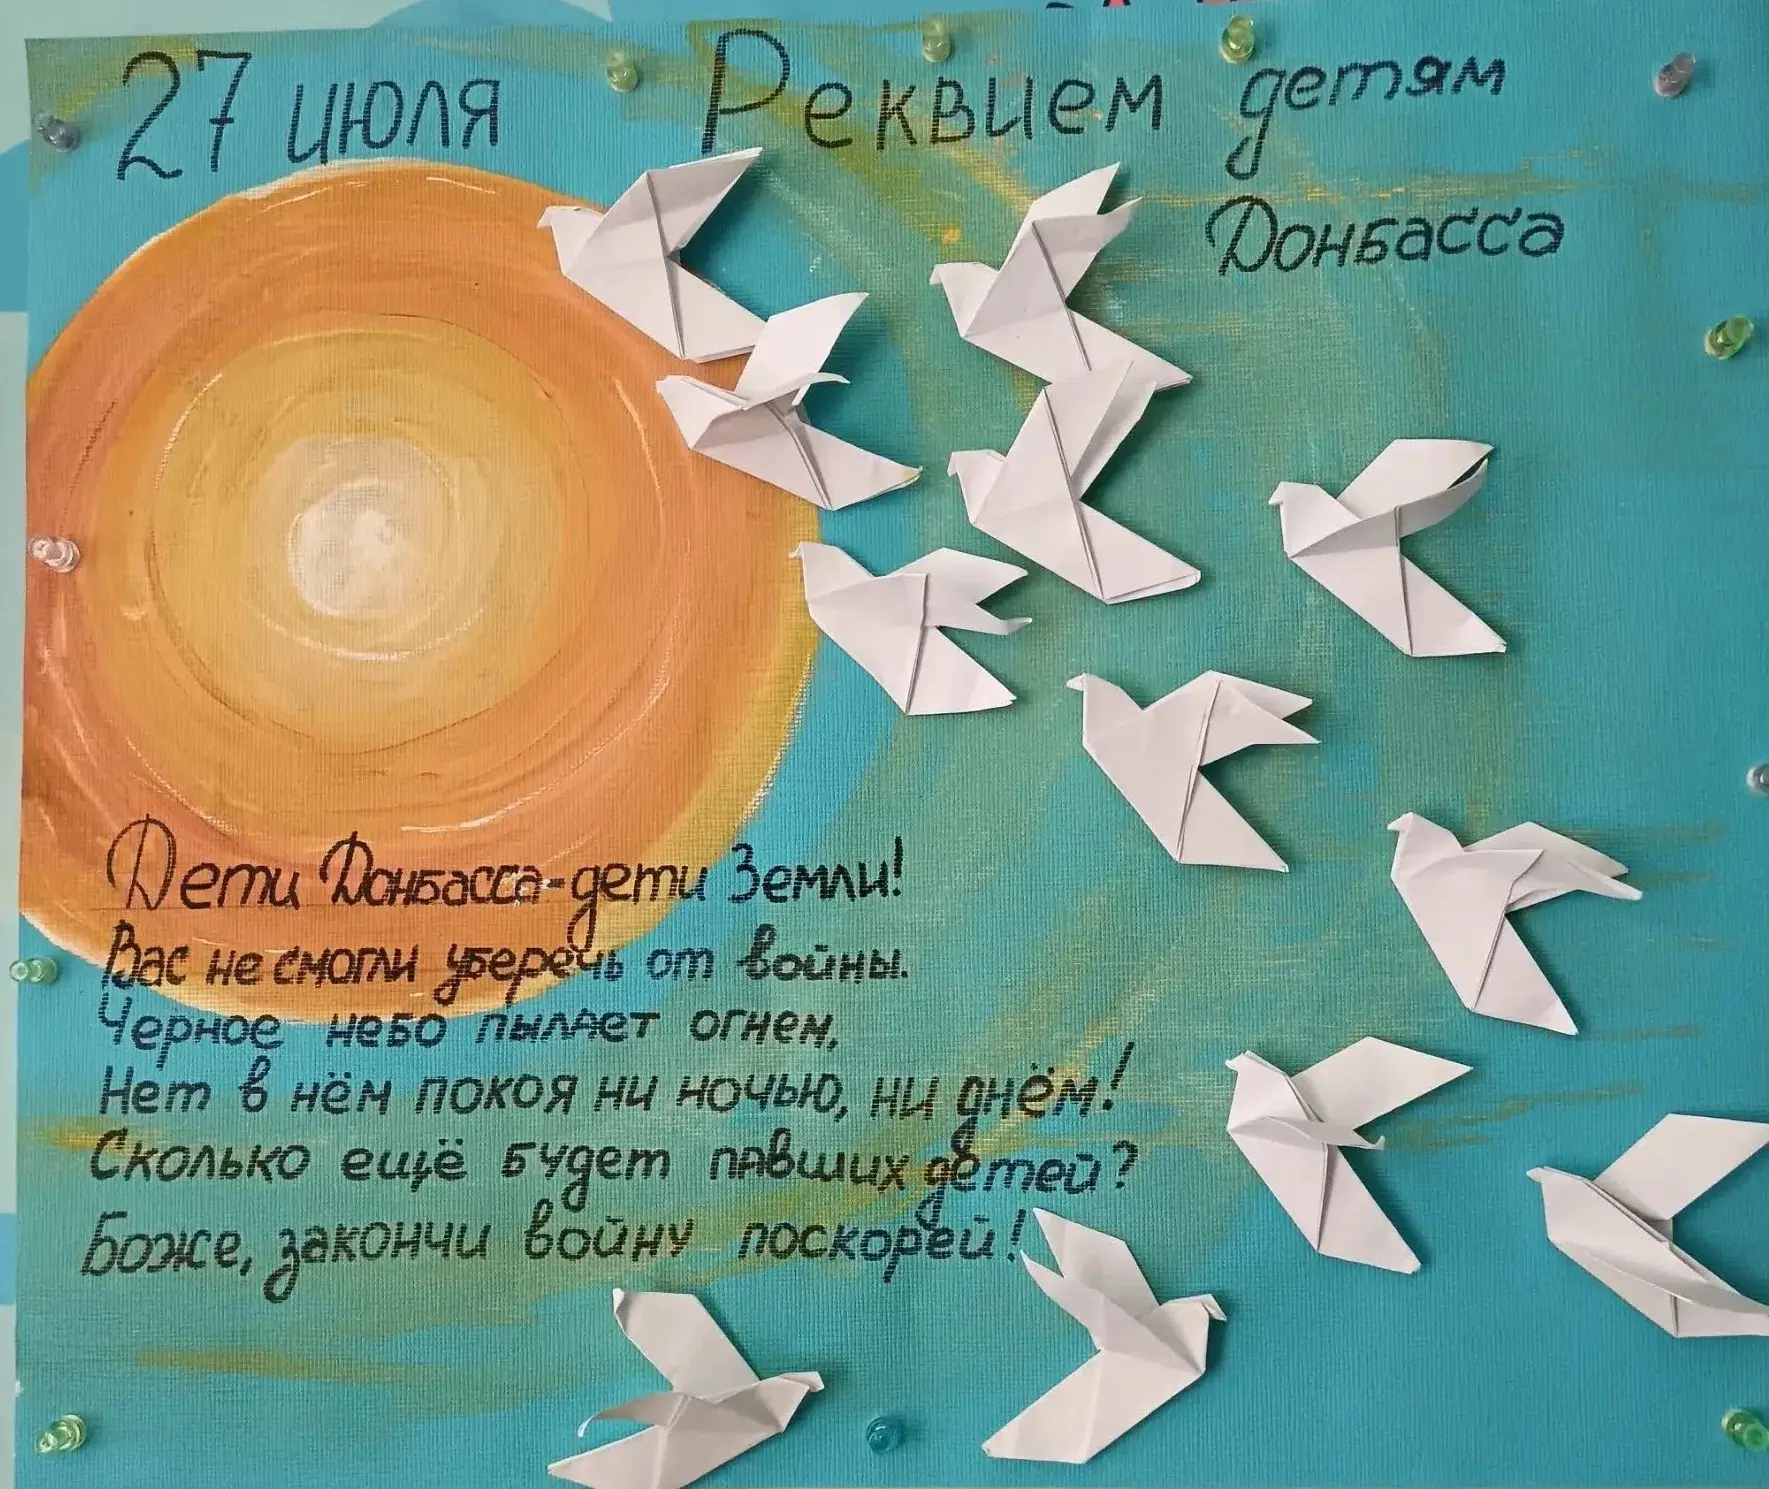 27 июля Реквием детям
Донбасса
Дети Донбасса-дети Земли!
Вас не смогли уберечь от войны.
Черное небо пылает огнем,
Нет в нём покоя ни ночью, ни днём!
Сколько ещё будет павших детей?
Боже, закончи войну поскорей!